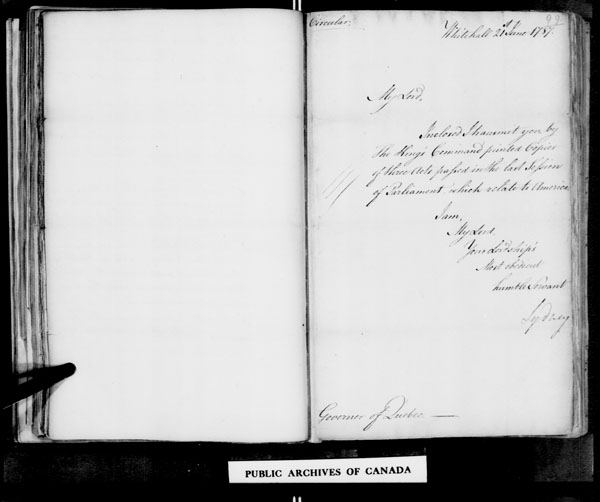 Circular.
Whitehall 21st June 1787.
My Lord,
Inclosed I transmit you by
The King's Command printed Copies
of three Acts passed in the last Session
of Parliament which relate to America
I am,
My Lord,
Your Lordship's
Most obedient
humble Servant
Sydney
Governor of Quebec. —
PUBLIC ARCHIVES OF CANADA